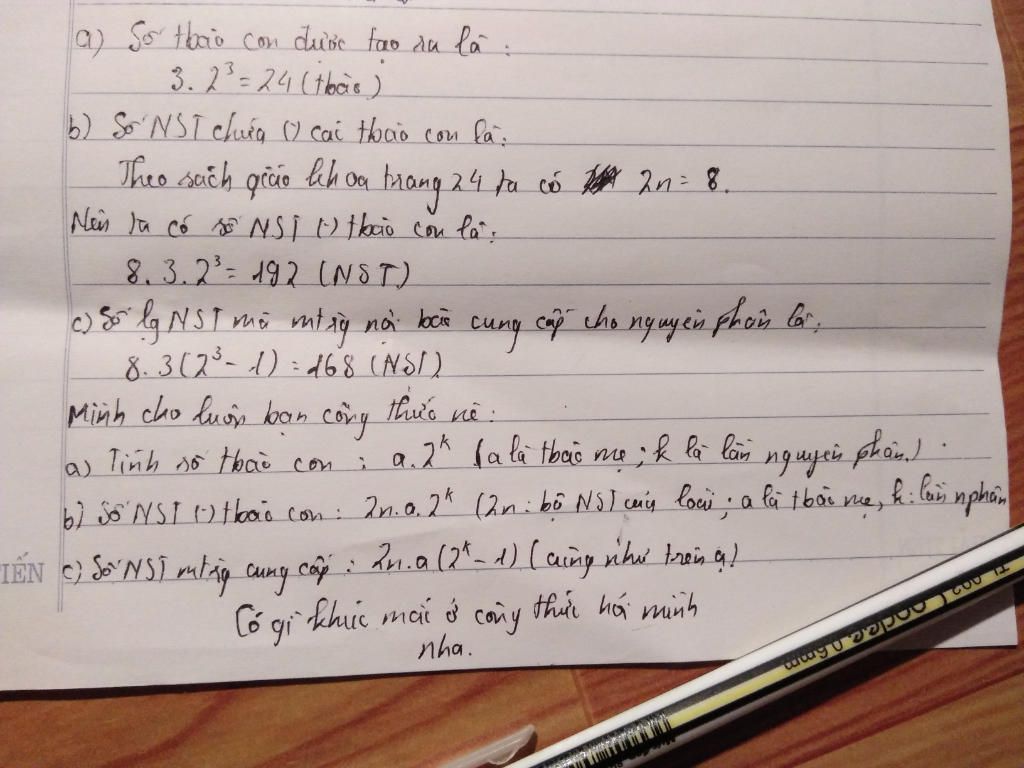 a) Số tbào con được tạo ra là:
3. 2³ = 24 (tbào)
b) Số NST chứa (-) các tbào con là:
Theo sách giáo khoa trang 24 ta có 2n = 8.
Nên ta có số NST (-) tbào con là:
8. 3. 2³ = 192 (NST)
c) Số lg NST mà mtrg nội bào cung cấp cho nguyên phân là:
8. 3 (2³ - 1) = 168 (NST)
Mình cho luôn bạn công thức nè:
a) Tính số tbào con : a. 2ᵏ (a là tbào mẹ ; k là lần nguyên phân.)
b) Số NST (-) tbào con : 2n. a. 2ᵏ (2n : bộ NST của loài ; a là tbào mẹ, k : lần nphân
c) Số NST mtrg cung cấp : 2n. a (2ᵏ - 1) (cũng như trên ạ)
TIẾN
Có gì khúc mắc ở công thức hỏi mình
nha.
0.6mm